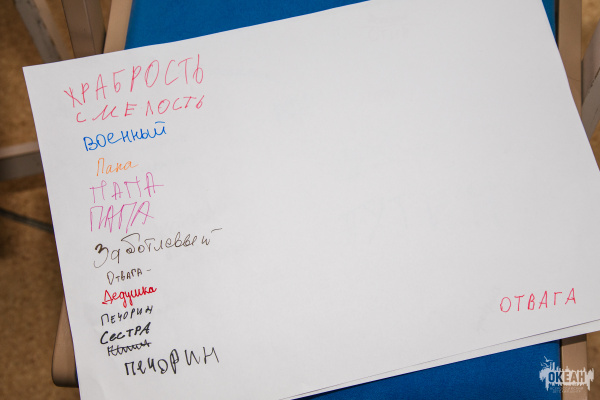 ХРАБРОСТЬ
СМЕЛОСТЬ
ВОЕННЫЙ
Папа
ПАПА
ПАПА
Заботлеввый
ОТВАГА -
Дедушка
ПЕЧОРИН
СЕСТРА
ПЕЧОРИН
ОТВАГА
ОКЕАН